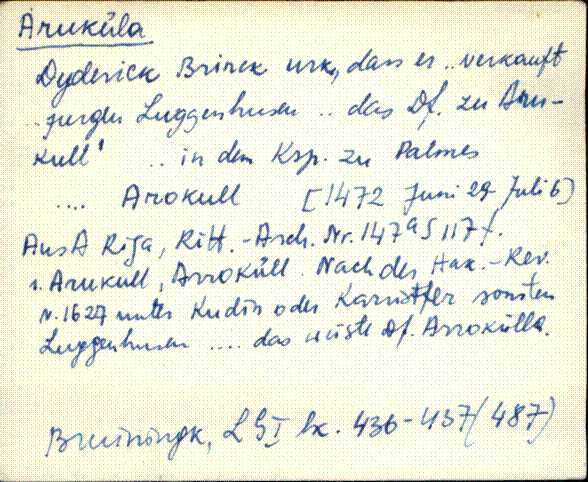 Aruküla
Dyderick Brinck urk, dass er .. verkauft
.. jurgen Luggenhusen .. das Df. zu Aru-
kull' .. in dem Ksp. zu Palmes
.... Arokull [1472 Juni 29 Juli 6]
AusA Riga, Ritt.-Arch. Nr. 147a S 117 f.
s. Arukull, Arroküll. Nach der Hak.-Rev.
v. 1627 unter Kudin oder Karristfer sonsten
Luggenhusen .... das wüste Df. Arroküllα.
Bruiningk, LG I lk. 436-437 (487)